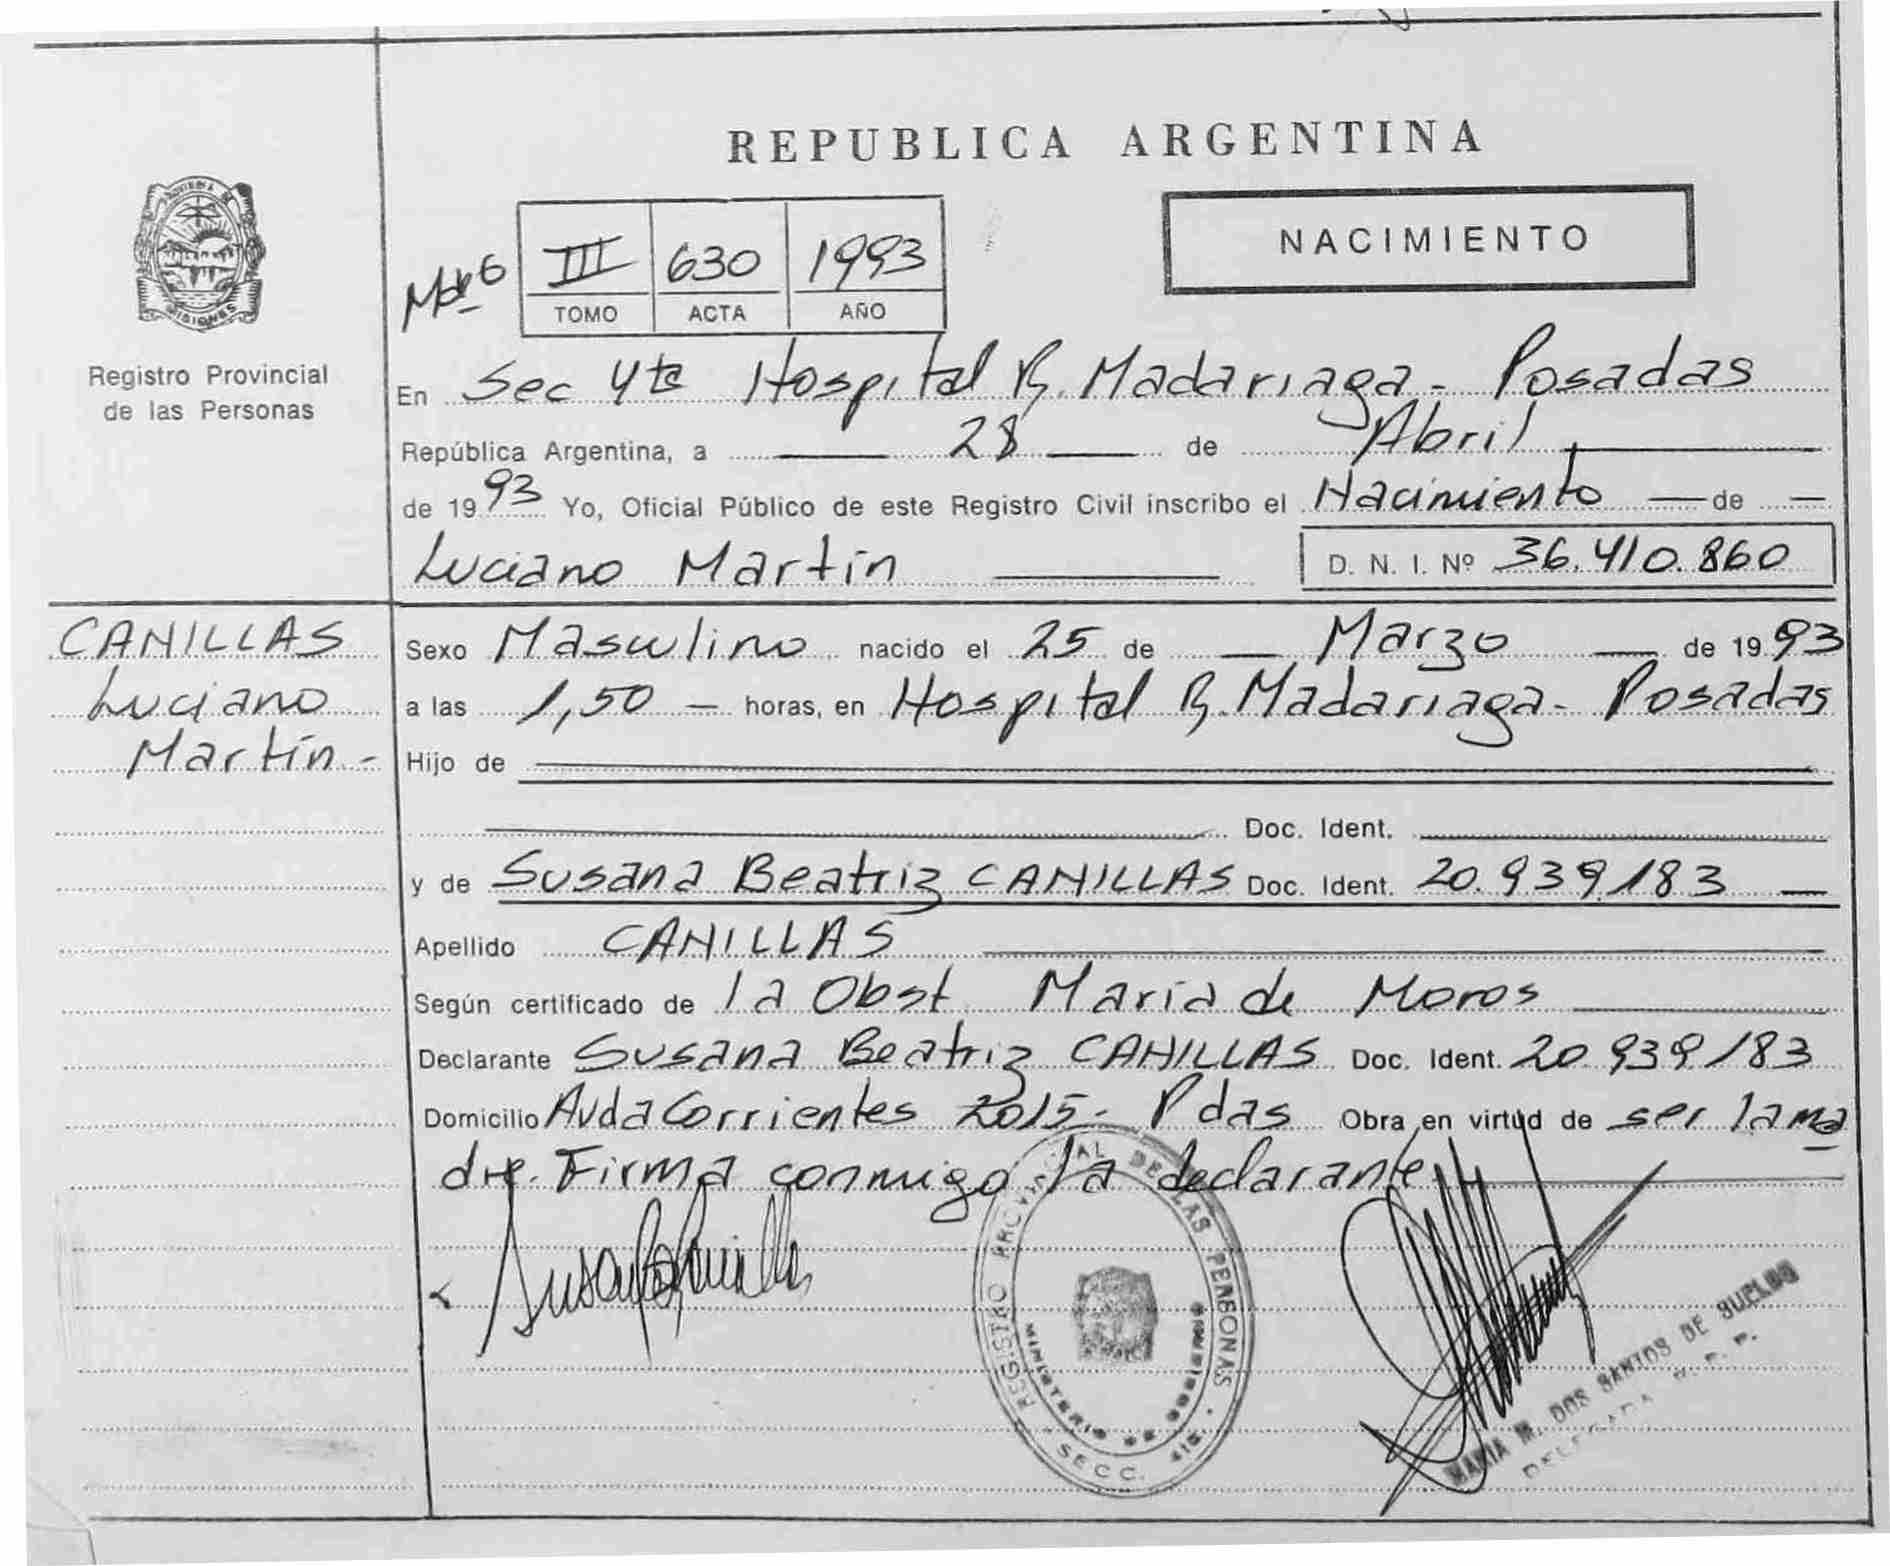 REPUBLICA ARGENTINA
NACIMIENTO
III 630 1993
TOMO ACTA AÑO
PROVINCIA DE
MISIONES
Registro Provincial
de las Personas
En Sec 4ta Hospital R. Madariaga - Posadas
República Argentina, a 28 de Abril
de 1993 Yo, Oficial Público de este Registro Civil inscribo el Nacimiento de
Luciano Martín D. N. I. Nº 36.410.860
CANILLAS
Luciano
Martín -
Sexo Masculino nacido el 25 de Marzo de 1993
a las 1,50 horas, en Hospital R. Madariaga - Posadas
Hijo de
Doc. Ident.
y de Susana Beatriz CANILLAS Doc. Ident. 20.939.183
Apellido CANILLAS
Según certificado de la Obst María de Moros
Declarante Susana Beatriz CANILLAS Doc. Ident. 20.939.183
Domicilio Avda Corrientes 2015 - Pdas Obra en virtud de ser la ma
dre. Firma conmigo la declarante
REGISTRO PROVINCIAL DE LAS PERSONAS
MINISTERIO DE GOBIERNO
SECC. 4ta.
MARIA M. DOS SANTOS DE
DELEGADA R. P. P.